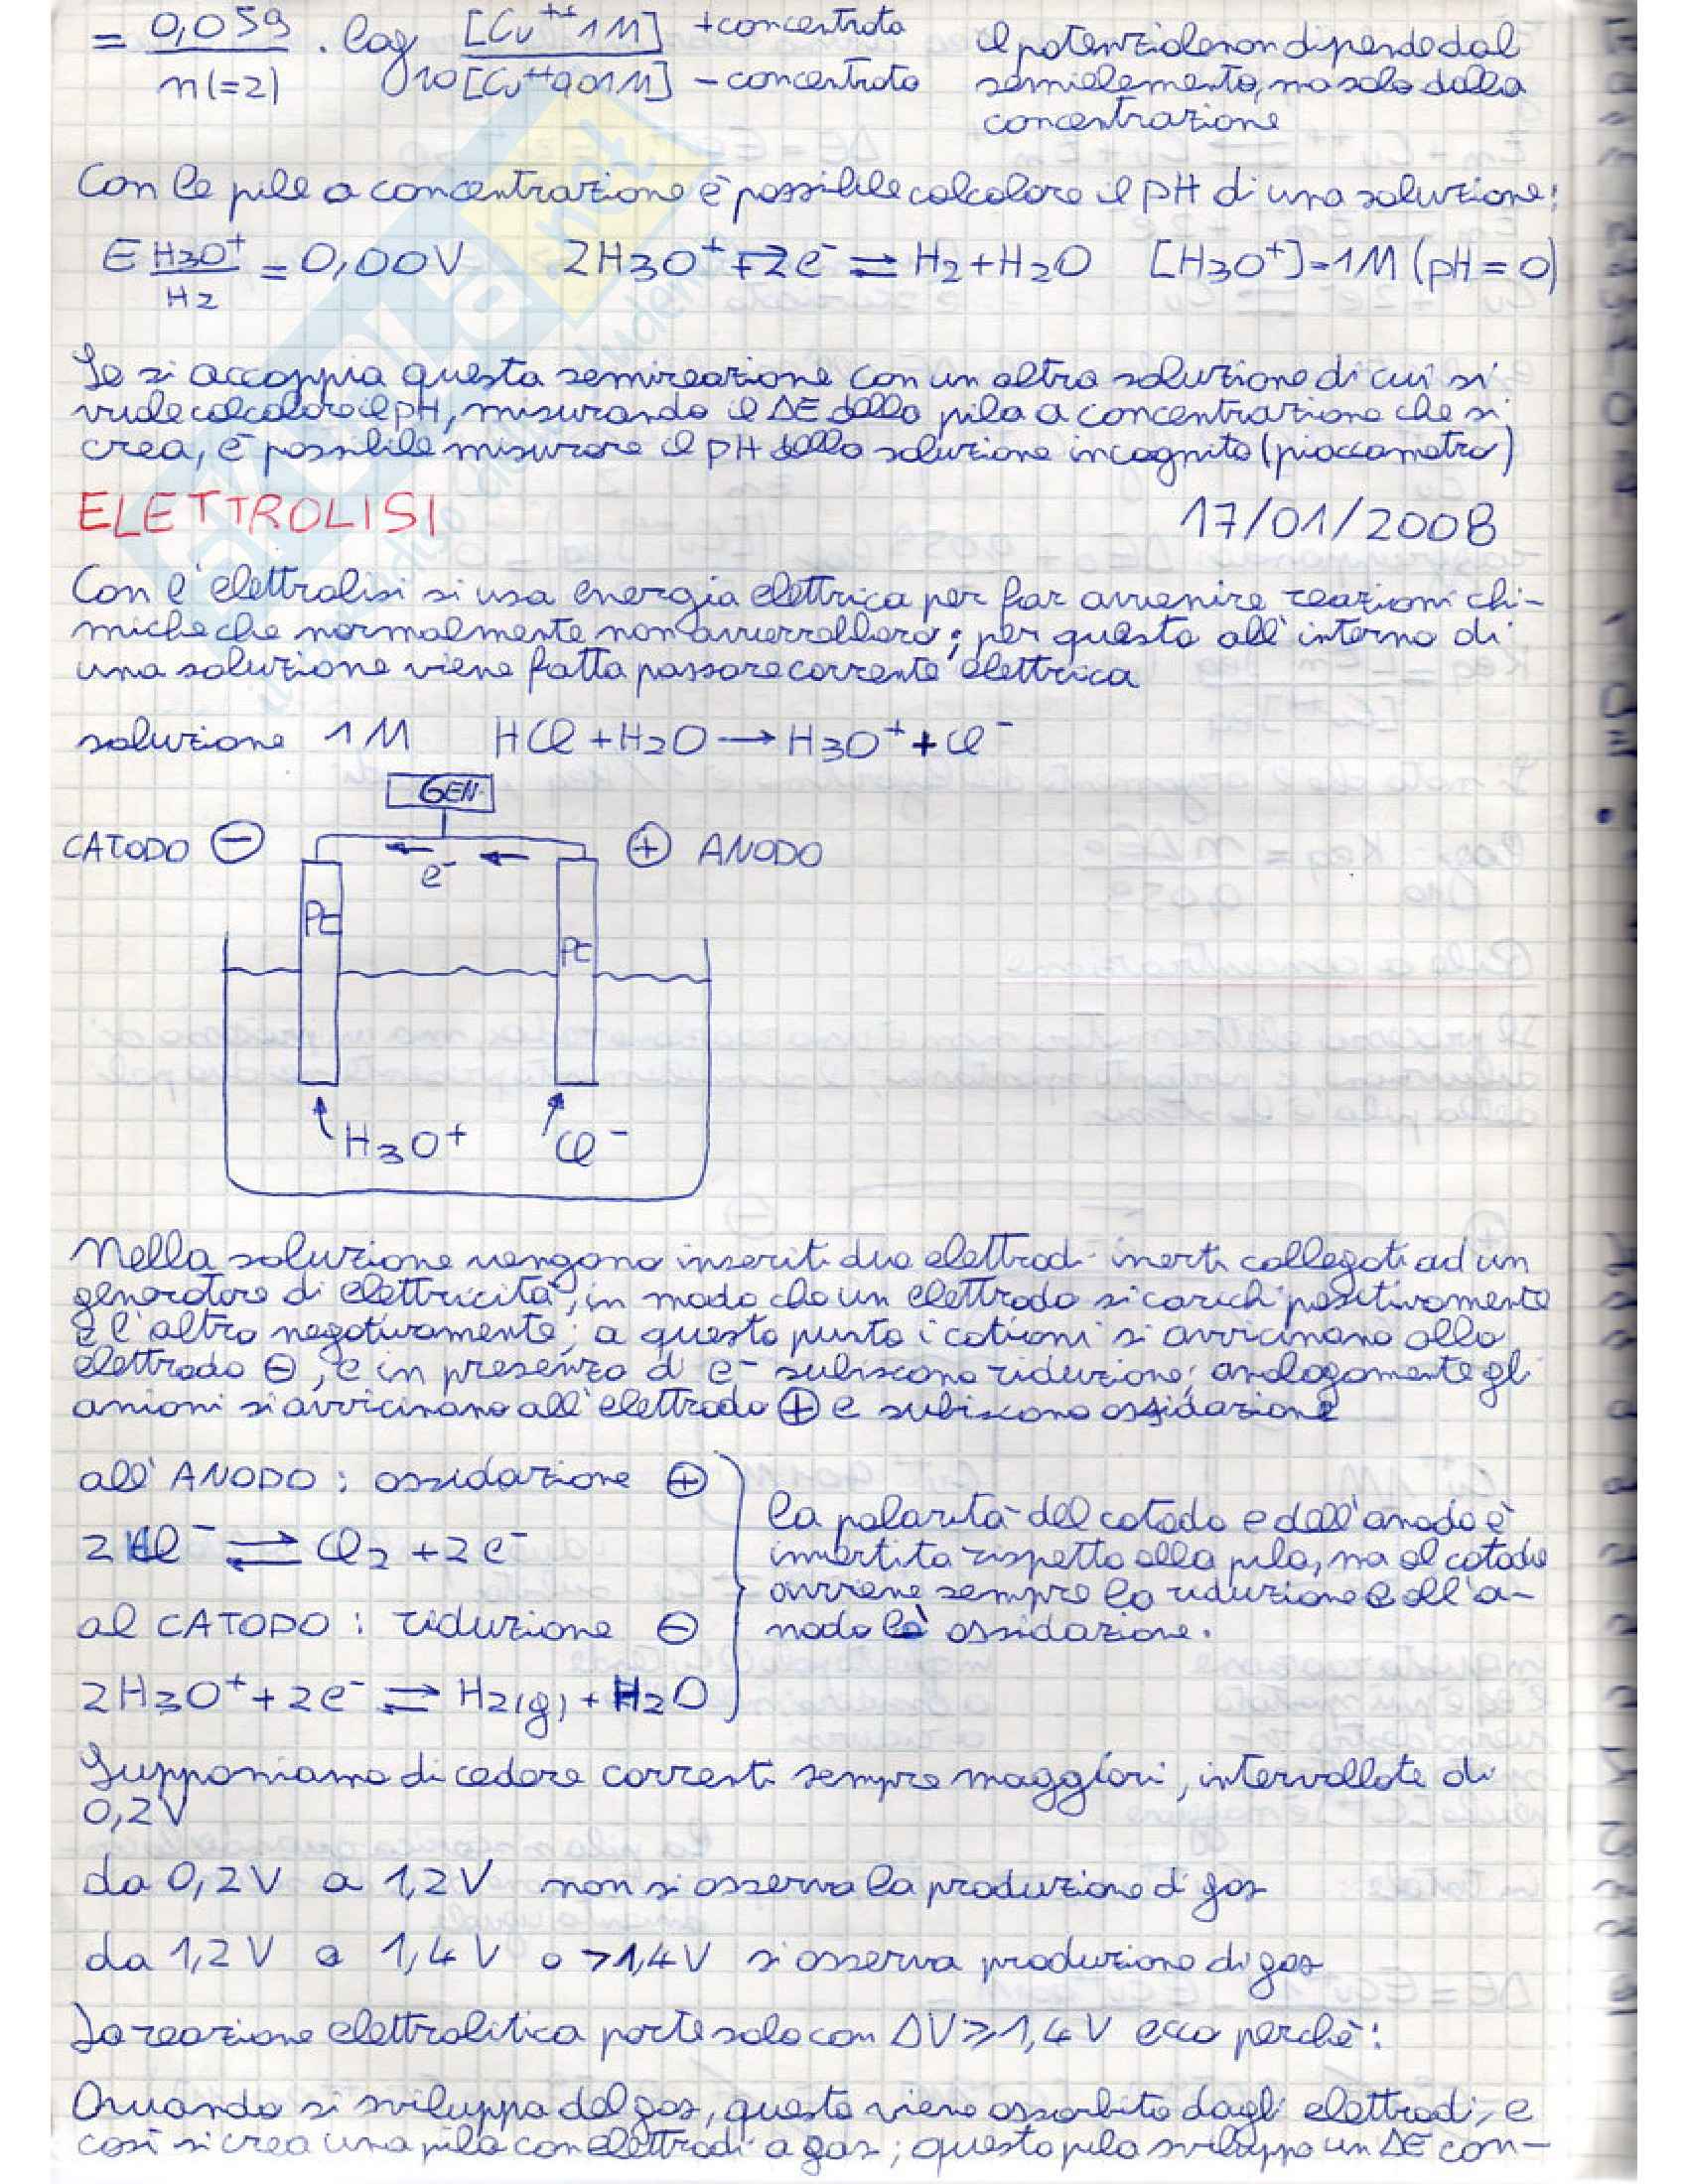 = 0,059 / n(=2) · log10 [Cu++ 1M] / [Cu++ 0,01M] + concentrata - concentrata
il potenziale non dipende dal
semielemento, ma solo dalla
concentrazione
Con le pile a concentrazione è possibile calcolare il pH di una soluzione:
E H3O+/H2 = 0,00V 2H3O+ + 2e- ⇌ H2 + H2O [H3O+] = 1M (pH = 0)
Se si accoppia questa semireazione con un altra soluzione di cui si
vuole calcolare il pH, misurando il ΔE della pila a concentrazione che si
crea, è possibile misurare il pH della soluzione incognita (piaccametro)
ELETTROLISI 17/01/2008
Con l'elettrolisi si usa energia elettrica per far avvenire reazioni chi-
miche che normalmente non avverrebbero; per questo all'interno di
una soluzione viene fatta passare corrente elettrica
soluzione 1M HCl + H2O → H3O+ + Cl-
GEN.
CATODO ⊖ e- ⊕ ANODO
Pt
Pt
H3O+ Cl-
Nella soluzione vengono inseriti due elettrodi inerti collegati ad un
generatore di elettricità, in modo che un elettrodo si carichi positivamente
e l'altro negativamente; a questo punto i cationi si avvicinano allo
elettrodo ⊖, e in presenza di e- subiscono riduzione; analogamente gli
anioni si avvicinano all'elettrodo ⊕ e subiscono ossidazione
all'ANODO: ossidazione ⊕
2Cl- ⇌ Cl2 + 2e-
al CATODO: riduzione ⊖
2H3O+ + 2e- ⇌ H2(g) + H2O
la polarità del catodo e dell'anodo è
invertita rispetto alla pila, ma al catodo
avviene sempre la riduzione e all'a-
nodo la ossidazione.
Supponiamo di cedere correnti sempre maggiori, intervallate di
0,2V
da 0,2V a 1,2V non si osserva la produzione di gas
da 1,2V a 1,4V o >1,4V si osserva produzione di gas
La reazione elettrolitica parte solo con ΔV ⩾ 1,4V ecco perchè:
Quando si sviluppa del gas, questo viene assorbito dagli elettrodi, e
così si crea una pila con elettrodi a gas; questa pila sviluppa un ΔE con-